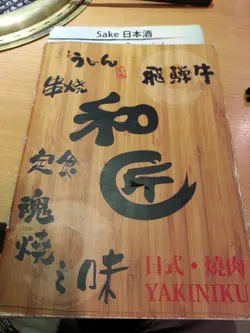 Sake 日本酒
うどん
飛騨牛
串焼
和匠
定食
魂焼之味
日式・焼肉
YAKINIKU